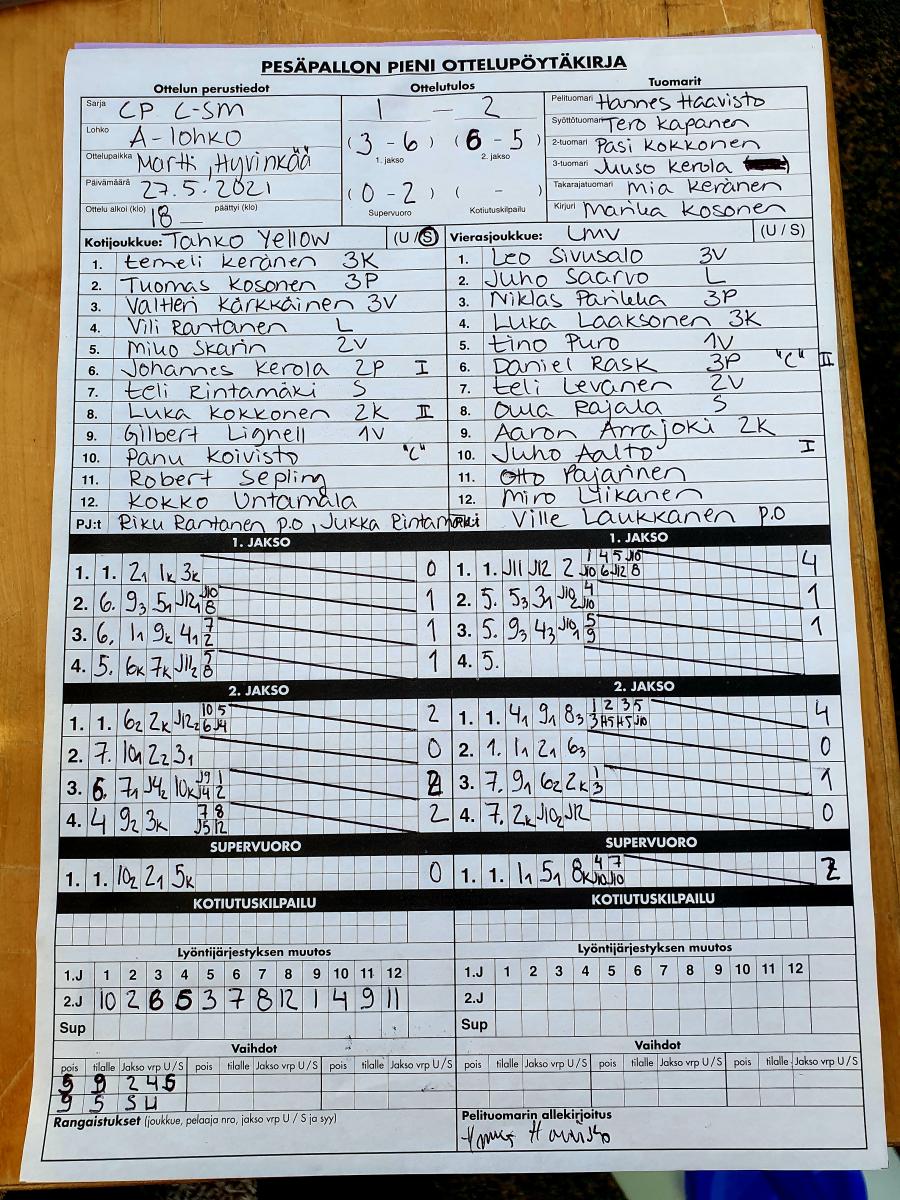 PESÄPALLON PIENI OTTELUPÖYTÄKIRJA
Ottelun perustiedot
Sarja CP C-SM
Lohko A-lohko
Ottelupaikka Martti, Hyvinkää
Päivämäärä 27.5.2021
Ottelu alkoi (klo) 18 — päättyi (klo)
Ottelutulos
1 — 2
(3 - 6) (6 - 5)
1. jakso 2. jakso
(0 - 2) ( - )
Supervuoro Kotiutuskilpailu
Tuomarit
Pelituomari Hannes Haavisto
Syöttötuomari Tero Kapanen
2-tuomari Pasi Kokkonen
3-tuomari Juuso Kerola
Takarajatuomari Mia Keränen
Kirjuri Marika Kosonen
Kotijoukkue: Tahko Yellow (U / S)
1. Eemeli Keränen 3K
2. Tuomas Kosonen 3P
3. Valtteri Kärkkäinen 3V
4. Vili Rantanen L
5. Miko Skarin 2V
6. Johannes Kerola 2P I
7. Eeli Rintamäki S
8. Luka Kokkonen 2K II
9. Gilbert Lignell 1V
10. Panu Koivisto "C"
11. Robert Sepling
12. Kokko Untamala
PJ:t Riku Rantanen p.o, Jukka Rintamäki
Vierasjoukkue: LMV (U / S)
1. Leo Sivusalo 3V
2. Juho Saarvo L
3. Niklas 3P
4. Luka Laaksonen 3K
5. Eino Puro 1V
6. Daniel Rask 3P "C" II
7. Eeli Levanen 2V
8. Oula Rajala S
9. Aaron Arrajoki 2K
10. Juho Aalto I
11. Otto Pajarinen
12. Miro Liikanen
Ville Laukkanen p.o
1. JAKSO
1. 1. 2₁ 1ₖ 3ₖ 0
2. 6. 9₃ 5₁ J12₁ J10 8 1
3. 6. 1₁ 9ₖ 4₁ 7 2 1
4. 5. 6ₖ 7ₖ J11₂ 8 1
1. JAKSO
1. 1. J11 J12 2 1 4 5 J10 J10 6 J12 8 4
2. 5. 5₃ 3₁ J10₂ 4 J10 1
3. 5. 9₃ 4₃ J10₁ 5 9 1
4. 5.
2. JAKSO
1. 1. 6₂ 2ₖ J12₂ 10 5 6 J4 2
2. 7. 10₁ 2₂ 3₁ 0
3. 6. 7₁ J4₂ 10ₖ J9 1 J4 2 2
4. 4 9₂ 3ₖ 7 8 J5 12 2
2. JAKSO
1. 1. 4₁ 9₁ 8₃ 1 2 3 5 4
2. 1. 1₁ 2₁ 6₃ 0
3. 7. 9₁ 6₂ 2ₖ 1 3 1
4. 7. 2ₖ J10₂ J12 0
SUPERVUORO
1. 1. 10₂ 2₁ 5ₖ 0
SUPERVUORO
1. 1. 1₁ 5₁ 8ₖ 4 7 J10 J10 2
KOTIUTUSKILPAILU
KOTIUTUSKILPAILU
Lyöntijärjestyksen muutos
1.J 1 2 3 4 5 6 7 8 9 10 11 12
2.J 10 2 6 5 3 7 8 12 1 4 9 11
Sup
Lyöntijärjestyksen muutos
1.J 1 2 3 4 5 6 7 8 9 10 11 12
2.J
Sup
Vaihdot
pois tilalle Jakso vrp U / S pois tilalle Jakso vrp U / S pois tilalle Jakso vrp U / S
5 9 2 4 S
9 5 S U
Vaihdot
pois tilalle Jakso vrp U / S pois tilalle Jakso vrp U / S pois tilalle Jakso vrp U / S
Rangaistukset (joukkue, pelaaja nro, jakso vrp U / S ja syy)
Pelituomarin allekirjoitus